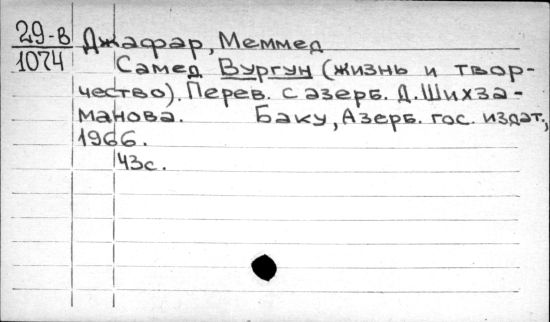 29-в Джафар, Меммед
1074 Самед Вургун (жизнь и твор-
чество). Перев. с азерб. Д. Шихза-
манова. Баку, Азерб. гос. издат.,
1966.
43с.